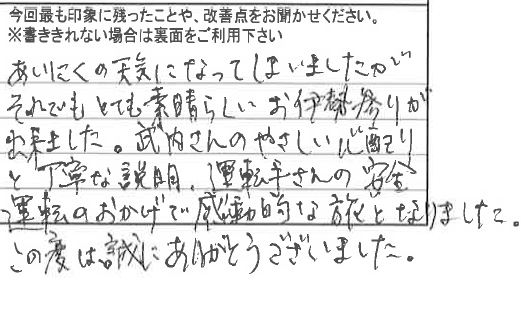 今回最も印象に残ったことや、改善点をお聞かせください。
※書ききれない場合は裏面をご利用下さい
あいにくの天気になってしまいましたが
それでもとても素晴らしいお伊勢参りが
出来ました。武内さんのやさしい心配り
と丁寧な説明、運転手さんの安全
運転のおかげで感動的な旅となりました。
この度は誠にありがとうございました。